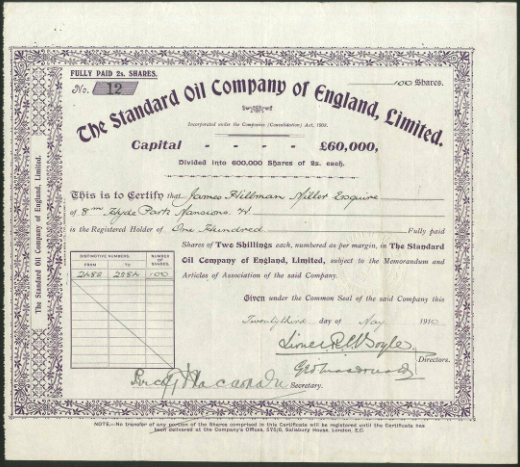 FULLY PAID 2s. SHARES.
No. 12
100 Shares.
The Standard Oil Company of England, Limited.
Incorporated under the Companies (Consolidation) Act, 1908.
Capital - - - - £60,000,
Divided into 600,000 Shares of 2s. each.
This is to Certify that James Hillman Miller Esquire
of Hyde Park Mansions W
is the Registered Holder of One Hundred Fully paid
Shares of Two Shillings each, numbered as per margin, in The Standard
Oil Company of England, Limited, subject to the Memorandum and
Articles of Association of the said Company.
Given under the Common Seal of the said Company this
Twentythird day of May 1910
DISTINCTIVE NUMBERS
NUMBER OF SHARES.
FROM TO
100
Directors.
Secretary.
The Standard Oil Company of England, Limited.
NOTE:—No transfer of any portion of the Shares comprised in this Certificate will be registered until the Certificate has
been delivered at the Company's Offices, Salisbury House, London, E.C.